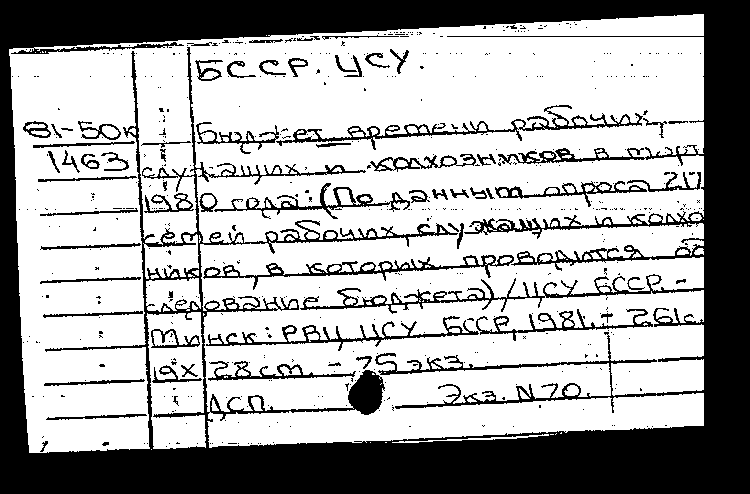 БССР. ЦСУ.
81-50к
1463
Бюджет времени рабочих,
служащих и колхозников в марте
1980 года: (По данным опроса 217
семей рабочих, служащих и колхо
ников, в которых проводится об
следование бюджета) / ЦСУ БССР. -
Минск: РВЦ ЦСУ БССР, 1981. - 261с.
19х28 см. - 75 экз.
ДСП. Экз. N 70.